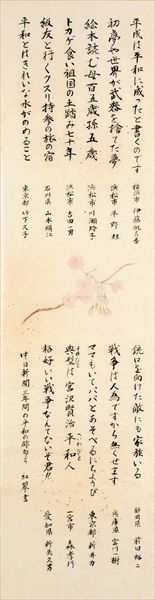 平成は平和に成ったと書くのです 横浜市 伊藤帆乃香
初夢や世界が武器を捨てた夢 浜松市 平野 旭
絵本読む母百五歳孫五歳 浜松市 川瀬玲子
トカゲ食い祖国の土踏み七十年 浜松市 吉田一男
級友と行くクスリ持参の旅の宿 石川県 山本順江
平和とはきれいな水がのめること 東京都 竹下久子
銃口を向けた敵にも家族いる 静岡県 前田裕二
戦争は人為ですから無くせます 兵庫県 宮川一樹
ママもいてパパとあそべるにちようび 東京都 新井力
典型は宮沢賢治平和人 一宮市 森孝行
格好いい戦争なんてないぞ君!! 愛知県 新美久男
中日新聞三年間の平和の俳句より 紅翠書